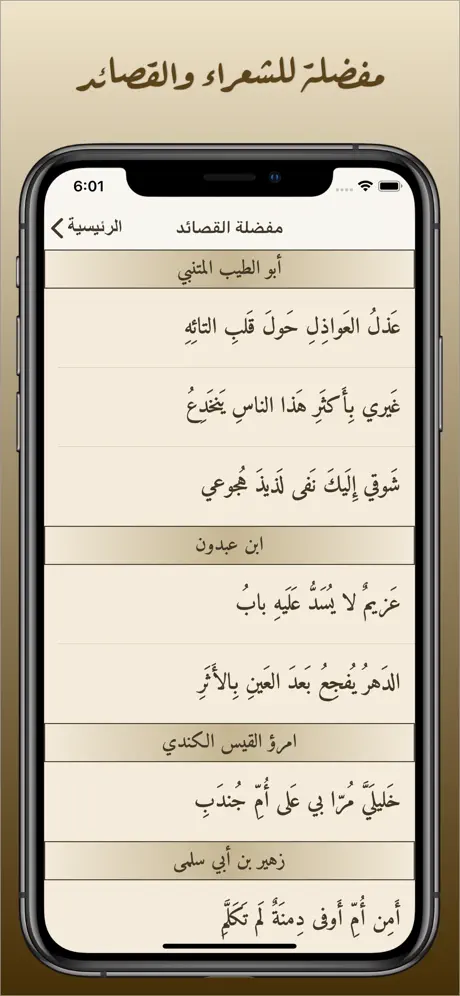 مفضلة للشعراء والقصائد
6:01
الرئيسية
مفضلة القصائد
أبو الطيب المتنبي
عَذلُ العَواذِلِ حَولَ قَلبِ التائِهِ
غَيري بِأَكثَرِ هَذا الناسِ يَنخَدِعُ
شَوقي إِلَيكَ نَفى لَذيذَ هُجوعي
ابن عبدون
عَزيمٌ لا يُسَدُّ عَلَيهِ بابُ
الدَهرُ يُفجِعُ بَعدَ العَينِ بِالأَثَرِ
امرؤ القيس الكندي
خَليلَيَّ مُرّا بي عَلى أُمِّ جُندَبِ
زهير بن أبي سلمى
أَمِن أُمِّ أَوفى دِمنَةٌ لَم تَكَلَّمِ